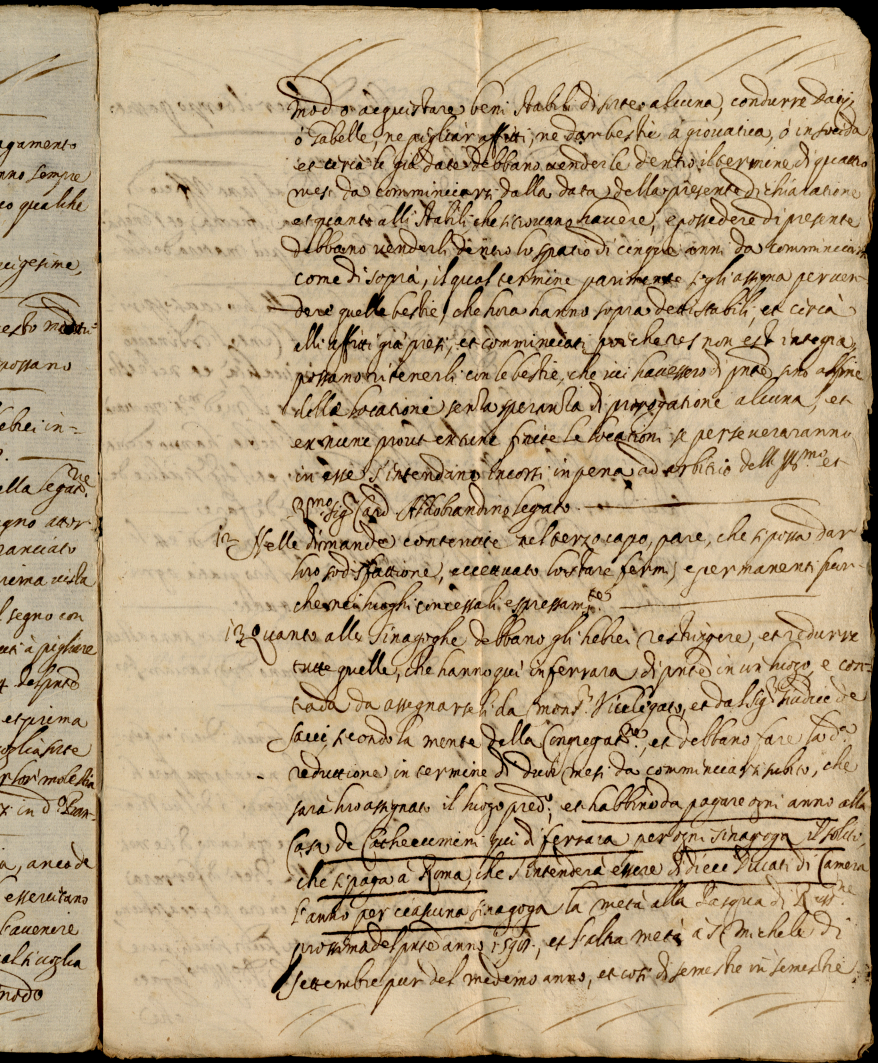 agamento
nno sempre
co qualche
ecigesime,
esto modo
possano
hebrei in=
ella legatne
egno attor
ranciato
rima visla
l segno con
uti à pigliare
del pnte
et prima
voglia sorte
molestia
x in d.o
ia, anco de
essercitano
l'avenire
qual si voglia
modo
modo acquistare beni stabili di sorte alcuna, condurre Datij,
ò Gabelle, ne pigliar affitti, ne dar bestie à giovatica, ò in soccida
et circa le già date debbano venderle dentro il termine di quattro
mesi da comminciarsi dalla data della presente dichiaratione
et quanto alli stabili che si trovano havere, e possedere di presente
debbano venderli dentro lo spatio di cinque anni da comminciarsi
come di sopra, il qual termine parimente segli assigna per ven-
dere quelle bestie, che hora hanno sopra detti stabili, et circà
alli affitti già presi, et comminciati poi che res non est integra,
possano ritenerli con le bestie, che ivi havessero di pnte sino al fine
delle locationi senza speranza di prorogatione alcuna, et
ex nunc prout ex tunc finite le locationi se perseveraranno
in esse s'intendano incorsi in pena ad arbitrio dell' Ill.mo et
R.mo Sig.r Card. Aldobrandino legato.
12 Nelle dimande contenute nel terzo capo, pare, che si possa dar
loro sodisfattione, eccettuato lo stare fermi, e permanenti fuor-
che nei luoghi concessali espressam.te
13 Quanto alle Sinagoghe debbano gli hebrei restringere, et redurre
tutte quelle, che hanno quì in ferrara di pnte in un luogo, e con-
trada da assegnarseli da Mons.r Vicelegato, et dal Sig.r Giudice de
Savi, secondo la mente della Congregat.ne, et debbano fare la d.a
reduttione in termine di duoi mesi da comminciarsi subito, che
sarà loro assegnato il luogo pred.o, et habbino da pagare ogni anno alla
Casa de Cathecumeni qui di ferrara per ogni sinagoga il solito,
che si paga à Roma, che s'intenderà essere di diece Ducati di Camera
l'anno per ciascuna sinagoga la metà alla Pasqua di Ress.ne
prossima del pnte anno, et l'altra metà à S. Michele di
settembre pur del medemo anno, et così di semestre in semestre